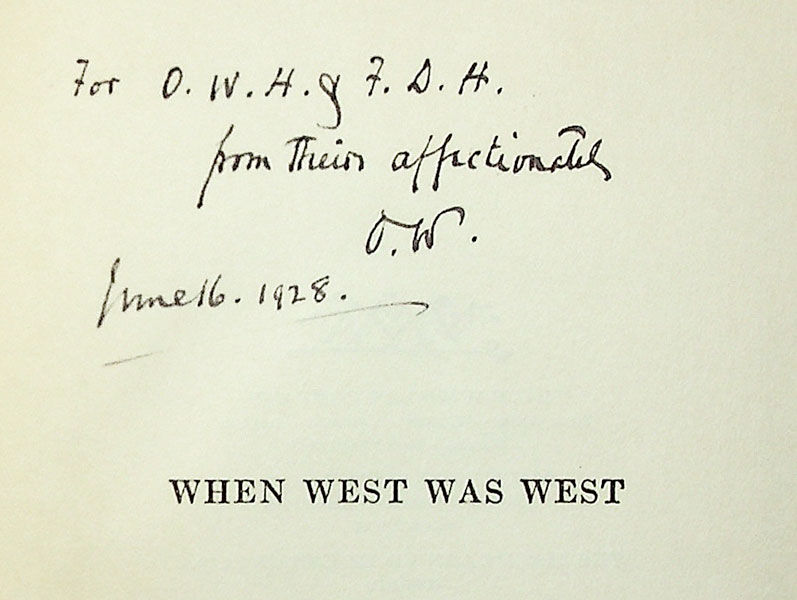 For O. W. H. & F. D. H.
from Theirs affectionately
O. W.
June 16. 1928.
WHEN WEST WAS WEST